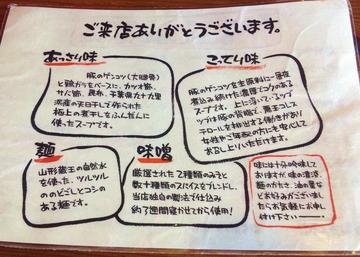 ご来店ありがとうございます。
あっさり味
豚のゲンコツ(大腿骨)
と鶏ガラをベースに、カツオ節、
サバ節、昆布、千葉県九十九里
浜産の天日干しで作られた
極上の煮干しをふんだんに
使ったスープです。
こってり味
豚のゲンコツを主原料に一昼夜
煮込み続けた濃度でコクのある
スープです。上に浮いているツブ
ツブは豚の背脂で、悪玉コレス
テロールを排出する働きがあり
女性やご年配の方にも安心して
お召し上りいただけます。
麺
山形蔵王の自然水
を使った、ツルツル
ののどごしとコシの
ある麺です。
味噌
厳選された2種類のみそと
数十種類のスパイスをブレンドし、
当店独自の製法で仕込み
約1週間寝かせてから使用!
味には十分吟味して
おりますが、味の濃淡、
麺のかたさ、油の量な
どお好みがございまし
たらお気軽にお申し
付け下さい